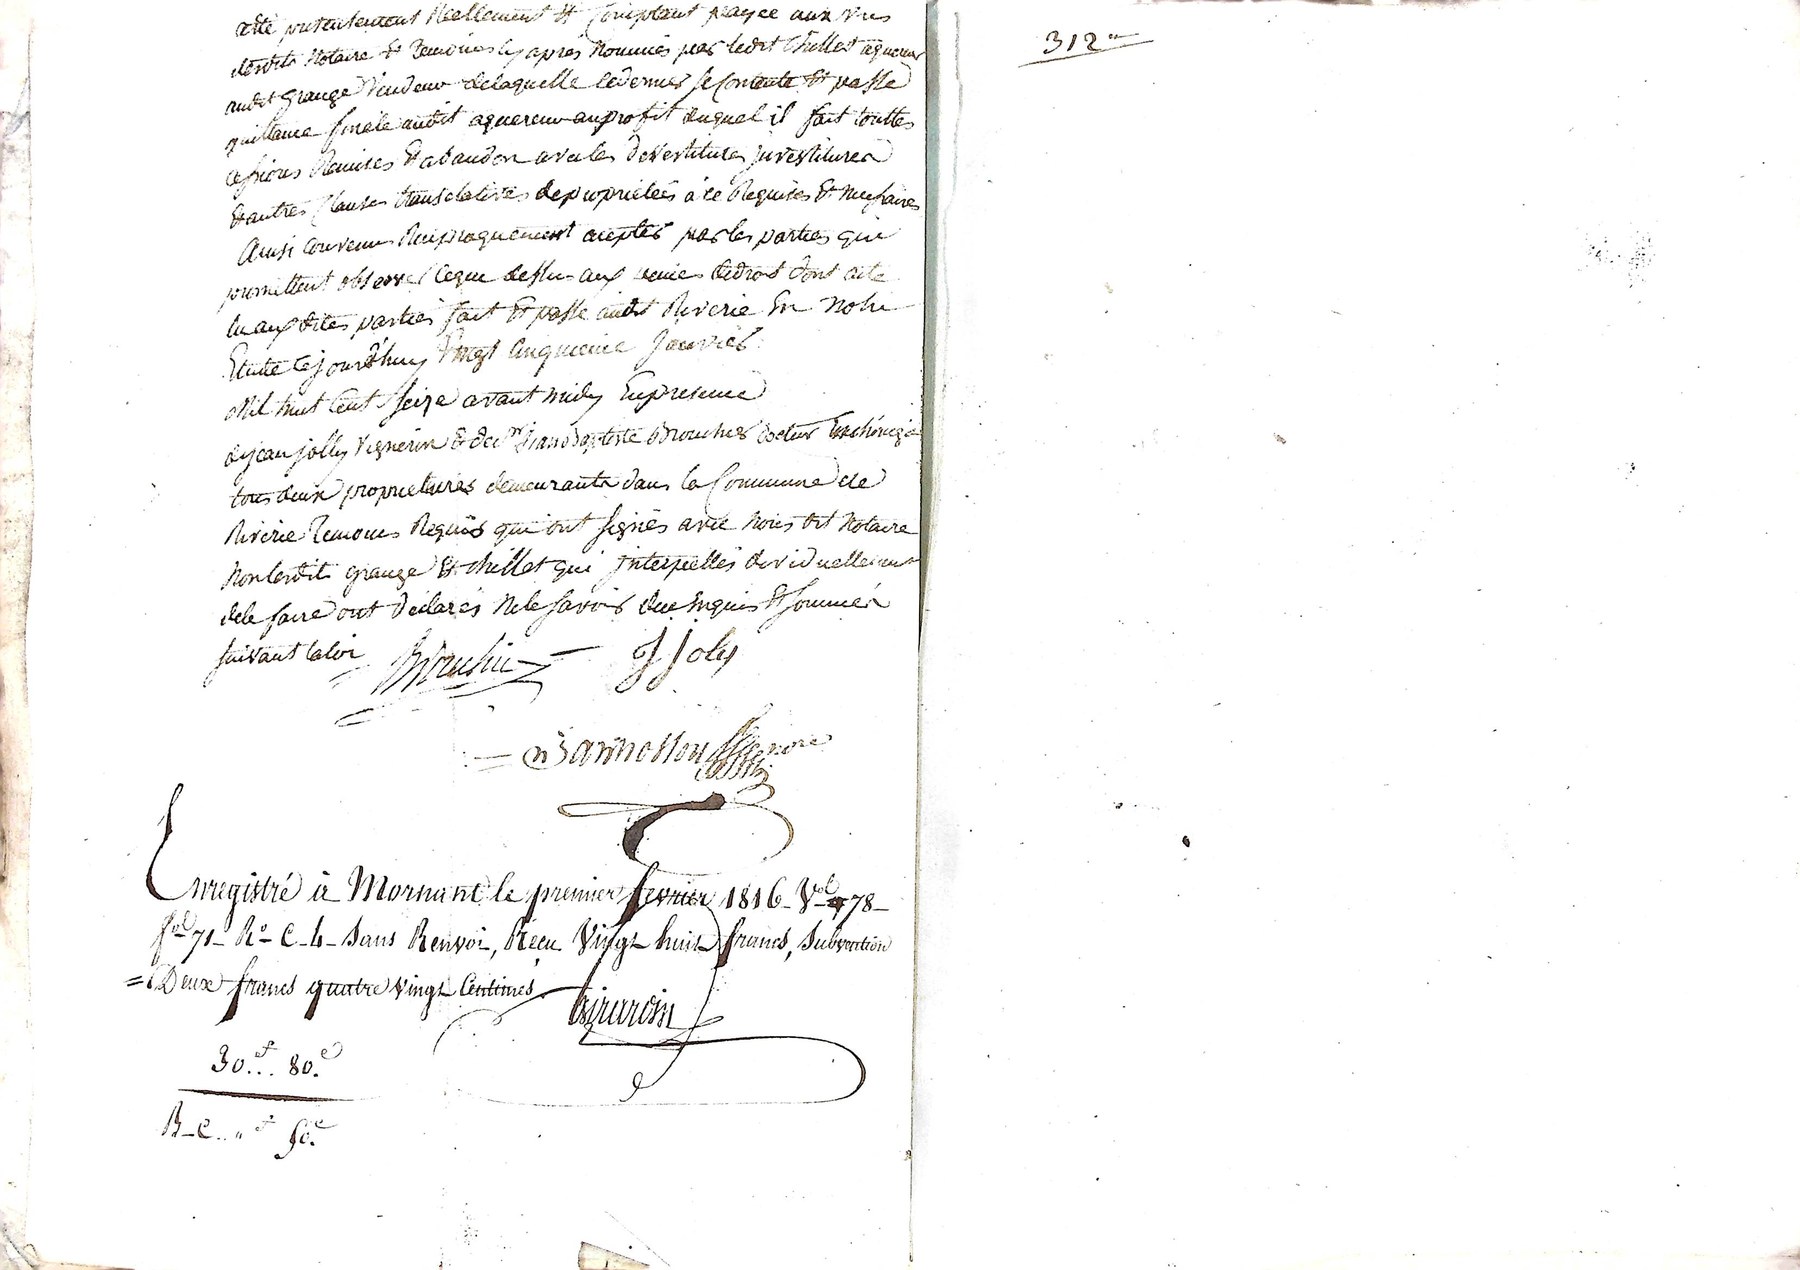 a été presentement Reellement et Comptant payée aux vus
desdits Notaire et temoins cy après Nommés par ledit Chillet aquereur
audit Grange Vendeur delaquelle cedernier se Contente et passe
quittance finale audit aquereur auprofit duquel il fait touttes
cessions Remises et abandon avec les devestitures investitures
et autres Clauses translatives depropriétés à ce Requises et necessaires
Ainsi Convenu Reciproquement acepté par les parties qui
promettent observer Ceque dessus aux peines dedroit dont acte
lu aux dites parties fait et passé audit Riverie En notre
Etude Cejourd'huy Vingt Cinquieme Janvier
Mil huit Cent Seize avant midy En presence
de jean jolly Vigneron & de sr jean Baptiste Brouchet docteur En chirurgie
tous deux proprietaires demeurants dans la Commune de
Riverie temoins Requis qui ont signés avec nous dit Notaire
Non lesdits Grange et Chillet qui interpellés
dele faire ont déclarés Nele savoir dece Enquis et sommés
suivant la loi
J Joly
Enregistré à Mornant le premier fevrier 1816 - Vol 78 -
fol 71 - Ro C - 4 - Sans Renvoi, Reçu Vingt huit francs, Subvention
= Deux francs quatre Vingt Centimes.
Girardin
30 f... 80 c
R - C .. " f 50 c
312